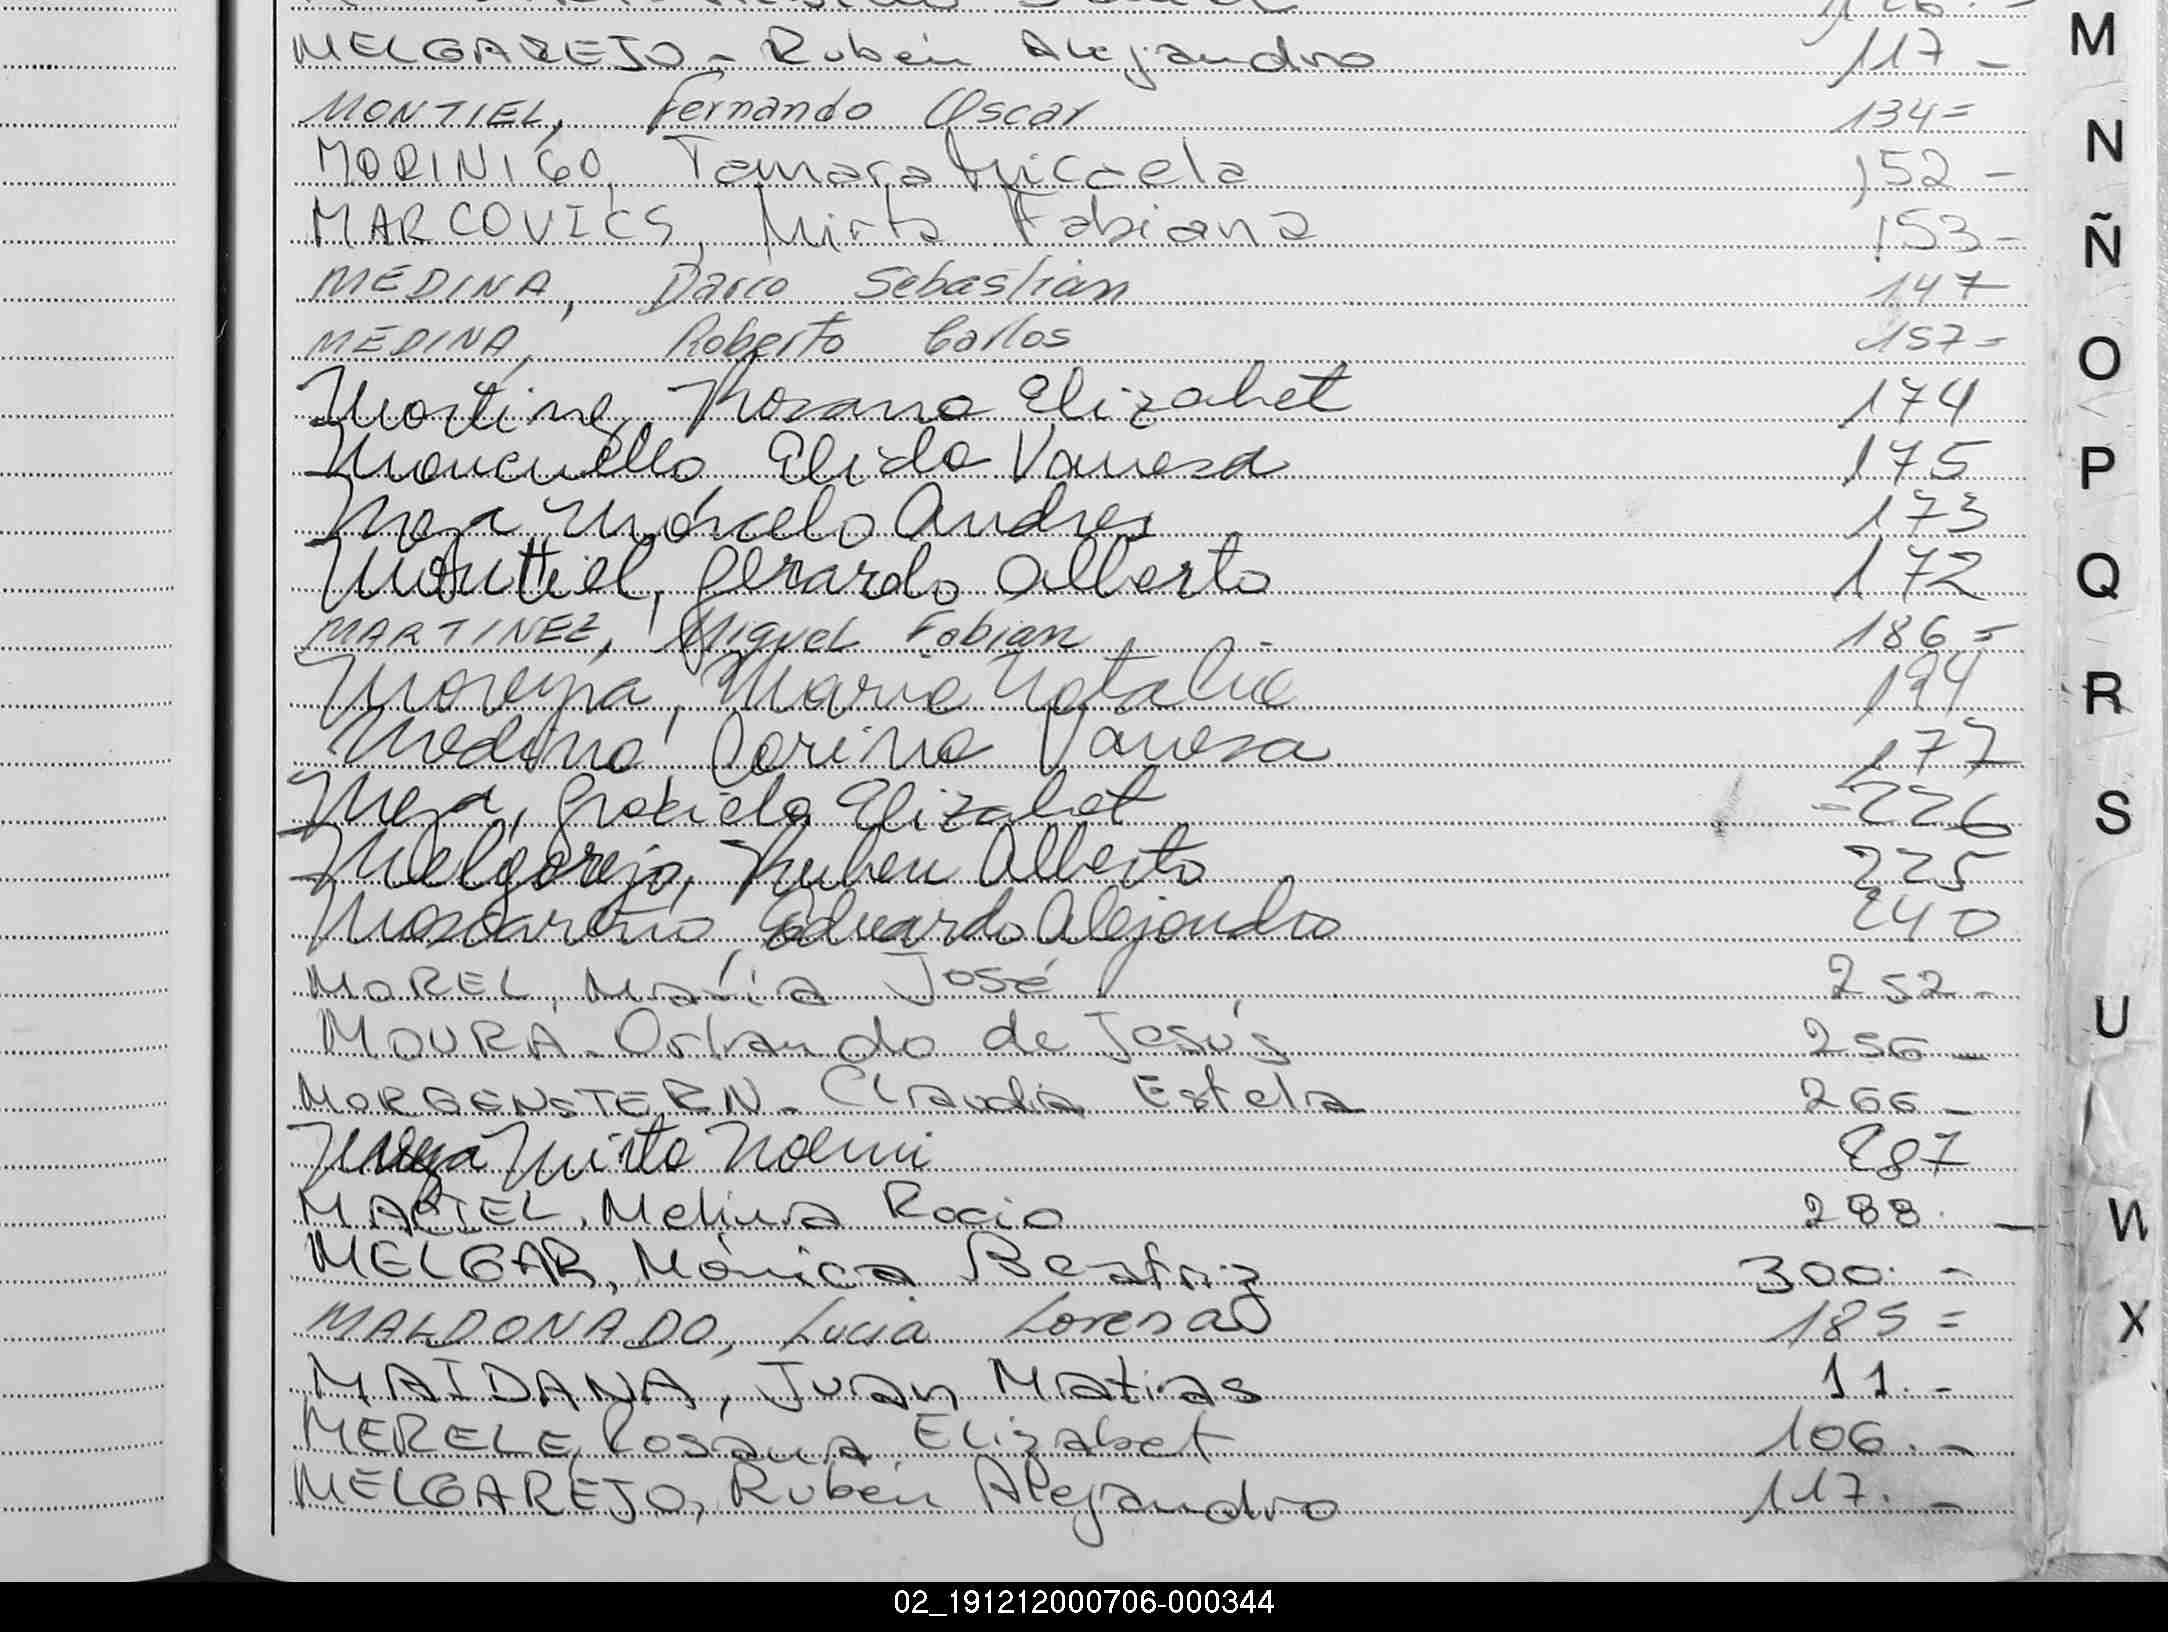 MELGAREJO - Rubén Alejandro 117 -
MONTIEL, Fernando Oscar 134=
MORINIGO, Tamara Micaela 152 -
MARCOVICS, Mirta Fabiana 153 -
MEDINA, Dario Sebastián 147
MEDINA, Roberto Carlos 157=
Martinez, Rosana Elizabet 174
Mancuello Elida Vanesa 175
Meza Marcelo Andres 173
Monttiel, Gerardo Alberto 172
MARTINEZ, Miguel Fabián 186=
Moreyra, Maria Natalia 194
Medina Corina Vanesa 177
Meza, Graciela Elizabet 226
Melgarejo, Ruben Alberto 225
Eduardo Alejandro 240
MOREL, María José 252 -
MOURA - Orlando de Jesús 256 -
MORGENSTERN - Claudia Estela 266 -
Mirta Noemi 287
MARTEL, Melina Rocio 288. -
MELGAR, Mónica Beatriz 300. -
MALDONADO, Lucia Lorena 185=
MAIDANA, Juan Matias 11. -
MERELE, Rosana Elizabet 106. -
MELGAREJO, Rubén Alejandro 117. -
M
N
Ñ
O
P
Q
R
S
U
W
X
02_191212000706-000344